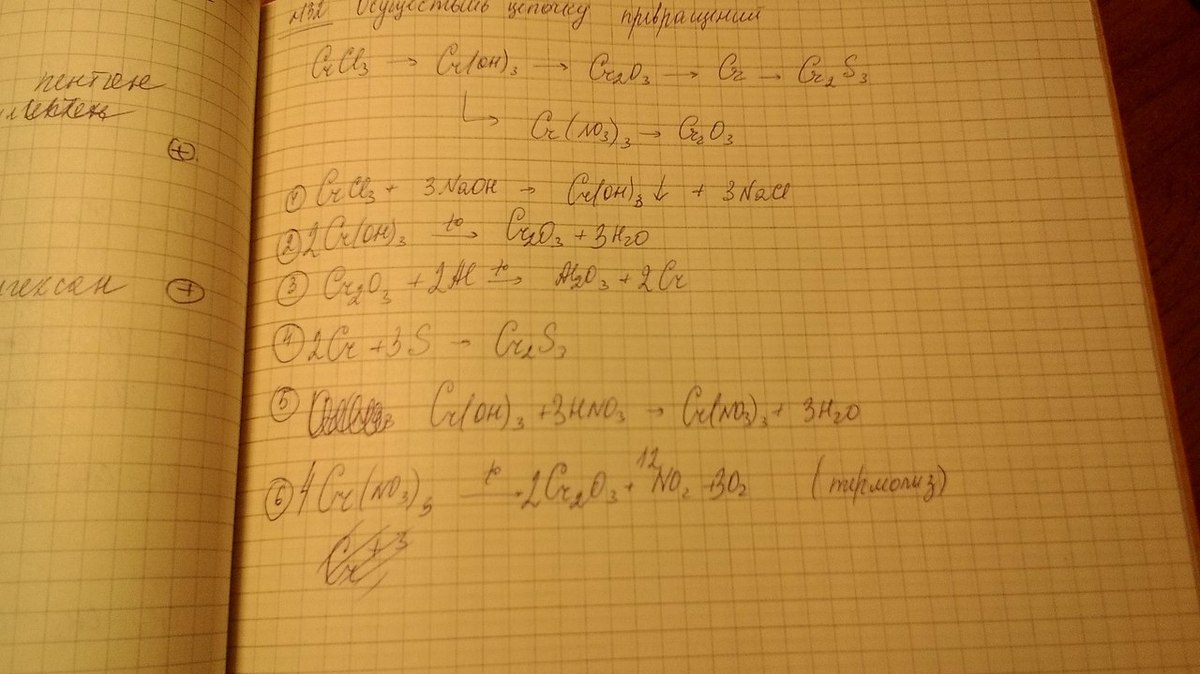 пентен
гексан
№132 Осуществить цепочку превращений
CrCl₃ → Cr(OH)₃ → Cr₂O₃ → Cr → Cr₂S₃
↳ Cr(NO₃)₃ → Cr₂O₃
① CrCl₃ + 3NaOH → Cr(OH)₃↓ + 3NaCl
② 2Cr(OH)₃ →t° Cr₂O₃ + 3H₂O
③ Cr₂O₃ + 2Al →t° Al₂O₃ + 2Cr
④ 2Cr + 3S → Cr₂S₃
⑤ Cr(OH)₃ + 3HNO₃ → Cr(NO₃)₃ + 3H₂O
⑥ 4Cr(NO₃)₃ →t° 2Cr₂O₃ + 12NO₂ + 3O₂ (термолиз)